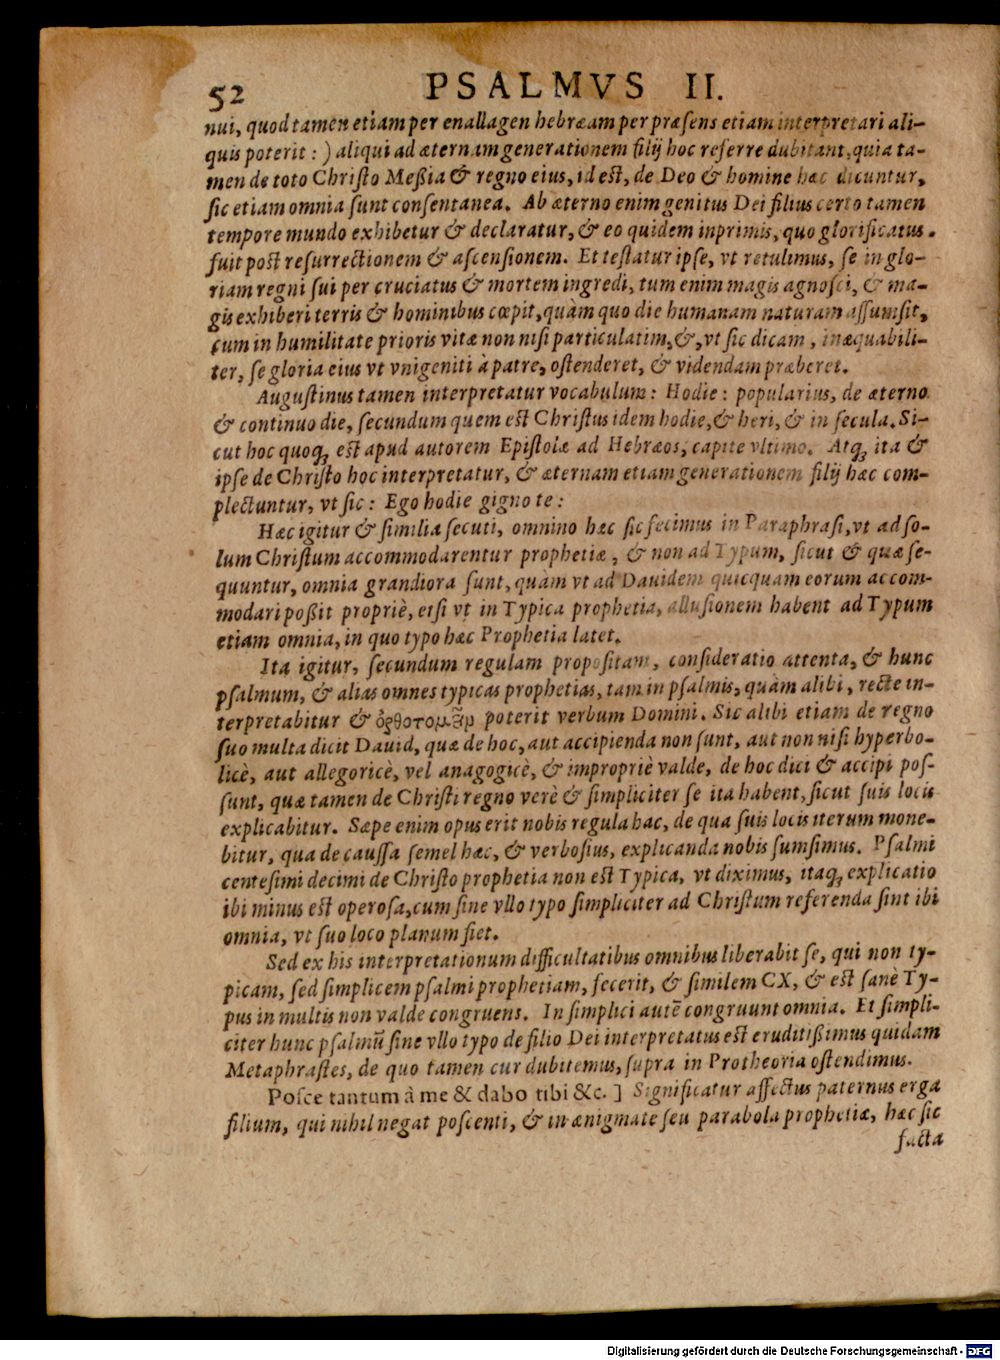 52 PSALMVS II.
nui, quod tamen etiam per enallagen hebræam per præsens etiam interpretari ali-
quis poterit: ) aliqui ad æternam generationem filij hoc referre dubitant, quia ta-
men de toto Christo Meßia & regno eius, id est, de Deo & homine hæc dicuntur,
sic etiam omnia sunt consentanea. Ab æterno enim genitus Dei filius certo tamen
tempore mundo exhibetur & declaratur, & eo quidem inprimis, quo glorificatus.
fuit post resurrectionem & ascensionem. Et testatur ipse, vt retulimus, se in glo-
riam regni sui per cruciatus & mortem ingredi, tum enim magis agnosci, & ma-
gis exhiberi terris & hominibus cœpit, quàm quo die humanam naturam assumsit,
cum in humilitate prioris vitæ non nisi particulatim, &, vt sic dicam, inæquabili-
ter, se gloria eius vt vnigeniti à patre, ostenderet, & videndam præberet.
Augustinus tamen interpretatur vocabulum: Hodie: popularius, de æterno
& continuo die, secundum quem est Christus idem hodie, & heri, & in secula. Si-
cut hoc quoqꝫ est apud autorem Epistolæ ad Hebræos, capite vltimo. Atqꝫ ita &
ipse de Christo hoc interpretatur, & æternam etiam generationem filij hæc com-
plectuntur, vt sic: Ego hodie gigno te:
Hæc igitur & similia secuti, omnino hæc sic fecimus in Paraphrasi, vt ad so-
lum Christum accommodarentur prophetiæ, & non ad Typum, sicut & quæ se-
quuntur, omnia grandiora sunt, quàm vt ad Dauidem quicquam eorum accom-
modari poßit propriè, etsi vt in Typica prophetia, allusionem habent ad Typum
etiam omnia, in quo typo hæc Prophetia latet.
Ita igitur, secundum regulam propositam, consideratio attenta, & hunc
psalmum, & alias omnes typicas prophetias, tam in psalmis, quàm alibi, recte in-
terpretabitur & ὀρθοτομεῖν poterit verbum Domini. Sic alibi etiam de regno
suo multa dicit Dauid, quæ de hoc, aut accipienda non sunt, aut non nisi hyperbo-
licè, aut allegoricè, vel anagogicè, & impropriè valde, de hoc dici & accipi pos-
sunt, quæ tamen de Christi regno verè & simpliciter se ita habent, sicut suis locis
explicabitur. Sæpe enim opus erit nobis regula hac, de qua suis locis iterum mone-
bitur, qua de caussa semel hæc, & verbosius, explicanda nobis sumsimus. Psalmi
centesimi decimi de Christo prophetia non est Typica, vt diximus, itaqꝫ explicatio
ibi minus est operosa, cum sine vllo typo simpliciter ad Christum referenda sint ibi
omnia, vt suo loco planum fiet.
Sed ex his interpretationum difficultatibus omnibus liberabit se, qui non ty-
picam, sed simplicem psalmi prophetiam, fecerit, & similem CX, & est sanè Ty-
pus in multis non valde congruens. In simplici autẽ congruunt omnia. Et simpli-
citer hunc psalmũ sine vllo typo de filio Dei interpretatus est eruditißimus quidam
Metaphrastes, de quo tamen cur dubitemus, supra in Protheoria ostendimus.
Posce tantum à me & dabo tibi &c. ] Significatur affectus paternus erga
filium, qui nihil negat poscenti, & in ænigmate seu parabola prophetiæ, hæc sic
facta
Digitalisierung gefördert durch die Deutsche Forschungsgemeinschaft - DFG